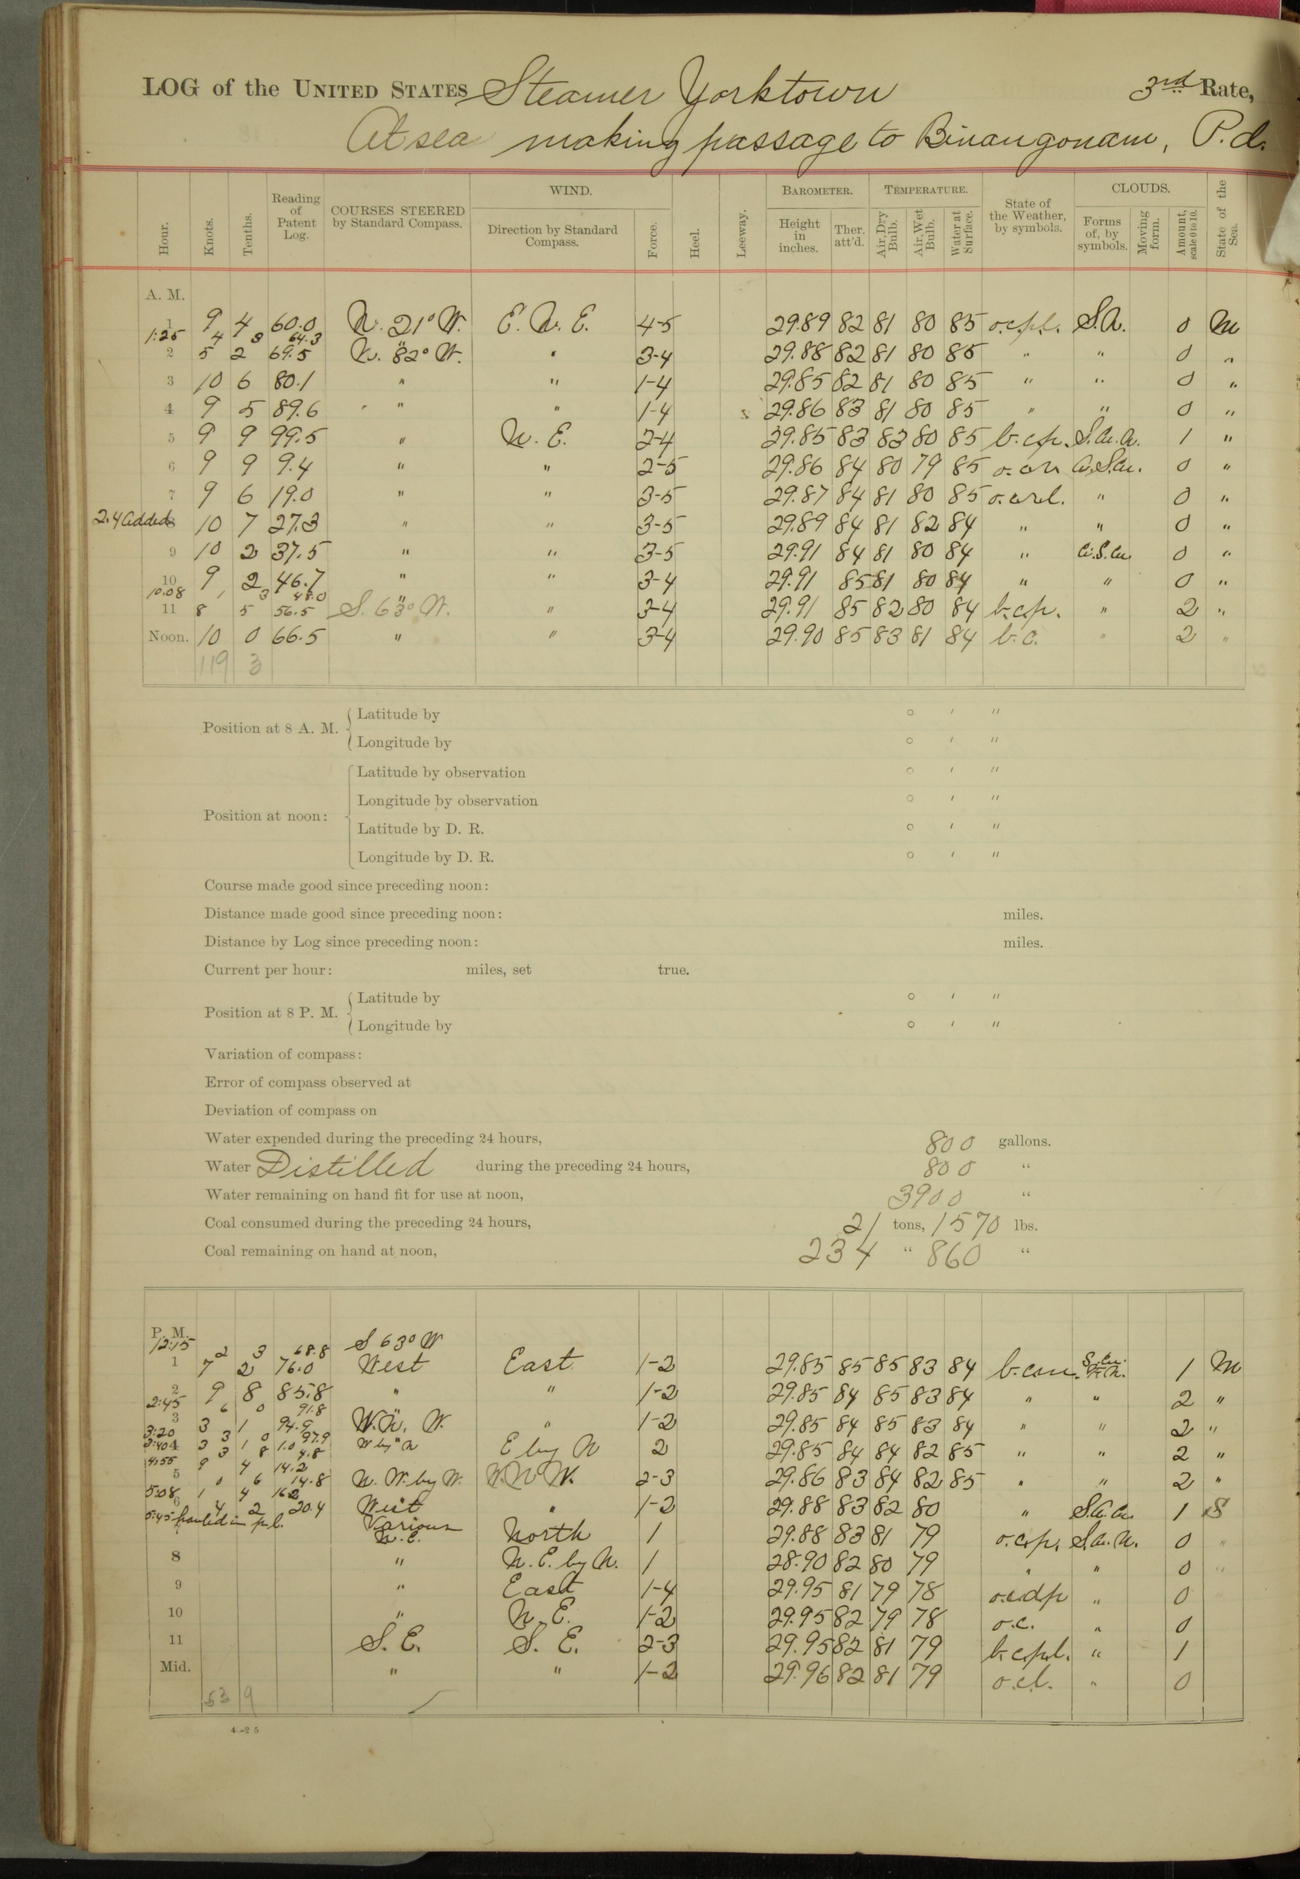 LOG of the UNITED STATES Steamer Yorktown 3rd Rate,
At sea making passage to Binangonam, P.I.
Hour. Knots. Tenths. Reading of Patent Log. COURSES STEERED by Standard Compass. WIND. Direction by Standard Compass. Force. Heel. Leeway. BAROMETER. Height in inches. Ther. att'd. TEMPERATURE. Air, Dry Bulb. Air, Wet Bulb. Water at Surface. State of the Weather, by symbols. CLOUDS. Forms of, by symbols. Moving form. Amount, scale 0 to 10. State of the Sea.
A. M.
1 9 4 60.0 N. 21° W. E. N. E. 4-5 29.89 82 81 80 85 o.c.p.l. S.N. 0 M
1:25 4 3 64.3
2 5 2 69.5 N. 82° W. " 3-4 29.88 82 81 80 85 " " 0 "
3 10 6 80.1 " " 1-4 29.85 82 81 80 85 " " 0 "
4 9 5 89.6 " " 1-4 29.86 83 81 80 85 " " 0 "
5 9 9 99.5 " N. E. 2-4 29.85 83 82 80 85 b.c.p. 1 "
6 9 9 9.4 " " 2-5 29.86 84 80 79 85 0 "
7 9 6 19.0 " " 3-5 29.87 84 81 80 85 " 0 "
2.4 added 8 10 7 27.3 " " 3-5 29.89 84 81 82 84 " " 0 "
9 10 2 37.5 " " 3-5 29.91 84 81 80 84 " 0 "
10 9 2 46.7 " " 3-4 29.91 85 81 80 84 " " 0 "
10.08 1 3 48.0
11 8 5 56.5 S. 63° W. " 3-4 29.91 85 82 80 84 b.c.p. " 2 "
Noon. 10 0 66.5 " " 3-4 29.90 85 83 81 84 b.c. " 2 "
119 3
Position at 8 A. M. Latitude by ° ′ ″
Longitude by ° ′ ″
Position at noon: Latitude by observation ° ′ ″
Longitude by observation ° ′ ″
Latitude by D. R. ° ′ ″
Longitude by D. R. ° ′ ″
Course made good since preceding noon:
Distance made good since preceding noon: miles.
Distance by Log since preceding noon: miles.
Current per hour: miles, set true.
Position at 8 P. M. Latitude by ° ′ ″
Longitude by ° ′ ″
Variation of compass:
Error of compass observed at
Deviation of compass on
Water expended during the preceding 24 hours, 800 gallons.
Water Distilled during the preceding 24 hours, 800 "
Water remaining on hand fit for use at noon, 3900 "
Coal consumed during the preceding 24 hours, 21 tons, 1570 lbs.
Coal remaining on hand at noon, 234 " 860 "
P. M.
12:15 2 3 68.8 S 63° W
1 7 2 76.0 West East 1-2 29.85 85 85 83 84 1 M
2 9 8 85.8 " " 1-2 29.85 84 85 83 84 " " 2 "
2:45 6 0 91.8
3 3 1 94.9 W.N. W. " 1-2 29.85 84 85 83 84 " " 2 "
3:20 3 0 97.9
4 3 1 1.0 W by N E by N 2 29.85 84 84 82 85 " " 2 "
3:40 3 8 4.8
4:55 9 4 14.2
5 0 6 14.8 N. W. by W. 2-3 29.86 83 84 82 85 " " 2 "
5:08 1 4 16.2
6 4 2 20.4 West " 1-2 29.88 83 82 80 " 1 S
5:45 hauled in p.l. Various
N.E. North 1 29.88 83 81 79 o.c.p. 0 "
8 " N. E. by N. 1 28.90 82 80 79 " " 0 "
9 " East 1-4 29.95 81 79 78 o.c.d.p " 0
10 " N. E. 1-2 29.95 82 79 78 o.c. " 0
11 S. E. S. E. 2-3 29.95 82 81 79 b.c.p.l. " 1
Mid. " " 1-2 29.96 82 81 79 o.c.l. " 0
53 9
4-25